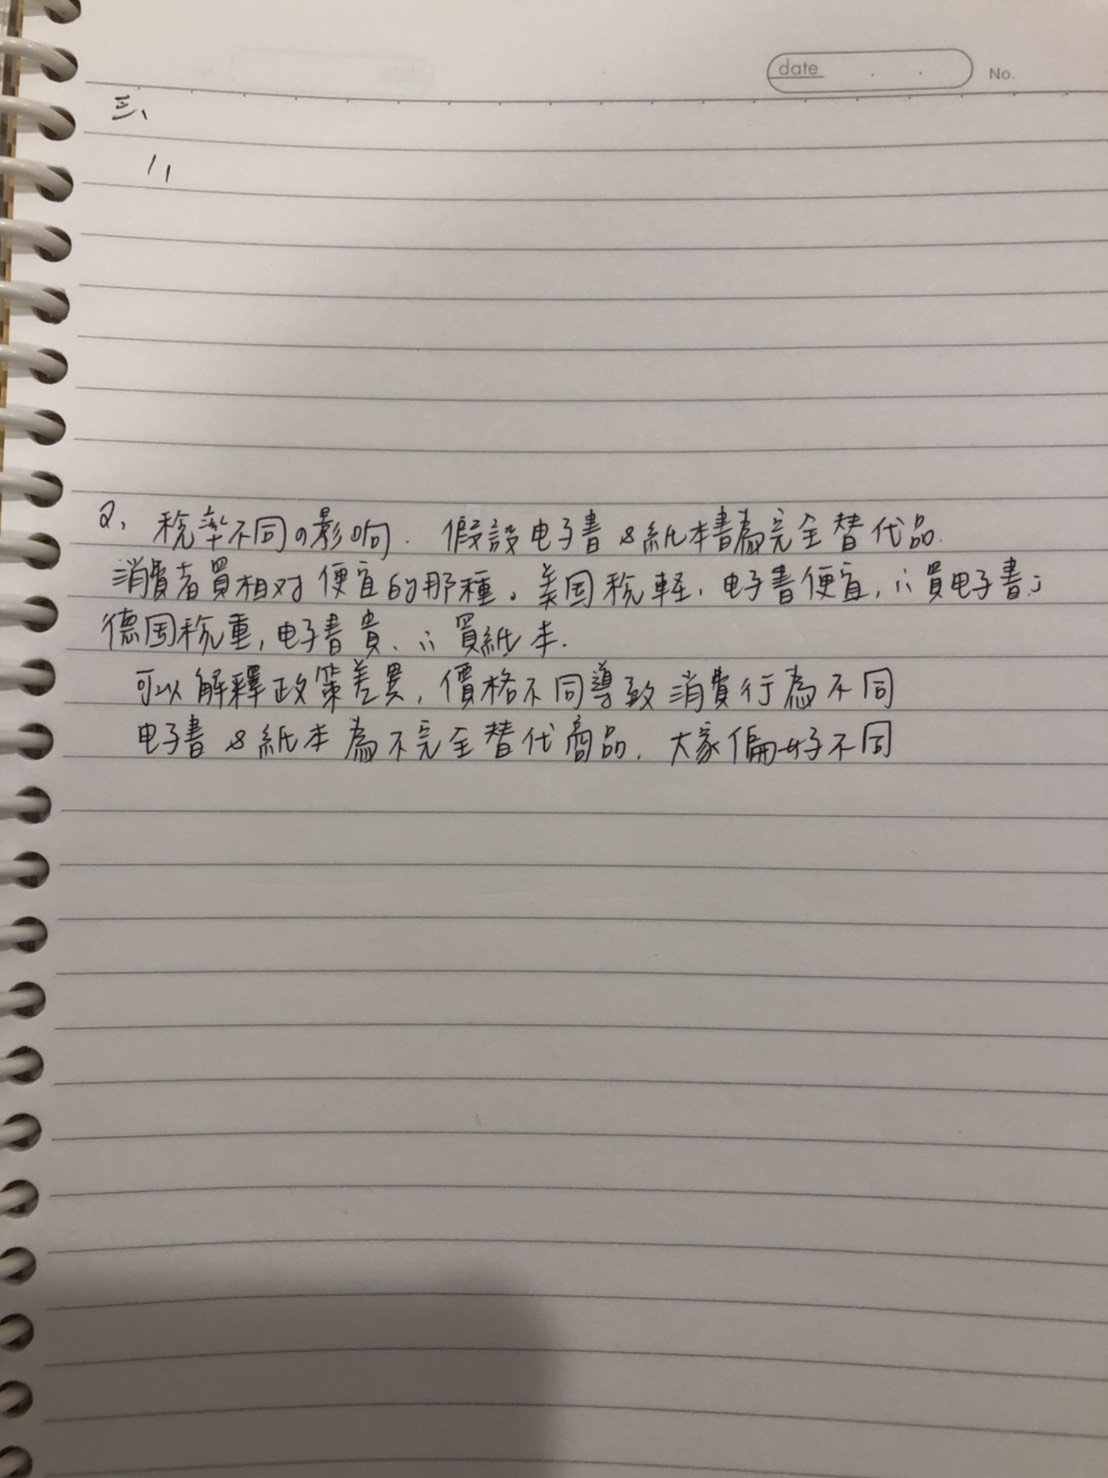 date
No.
三、
1、
2、稅率不同の影响. 假設电子書&紙本書為完全替代品.
消費者買相对便宜的那種。美国稅輕,电子書便宜,∴買电子書;
德国稅重,电子書貴,∴買紙本.
可以解釋政策差異,價格不同導致消費行為不同
电子書&紙本為不完全替代商品,大家偏好不同